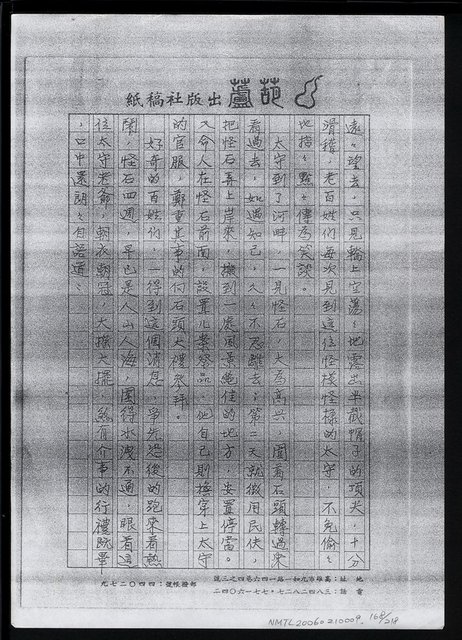 葫蘆出版社稿紙
遠々望去，只見轎上空蕩々地露出半截帽子的頂尖，十分
滑稽，老百姓們每次見到這位怪模怪樣的太守，不免偷々
地指々點々傳為笑談。
太守到了河畔，一見怪石，大為高興，圍着石頭轉過來
看過去，如遇知己，久々不忍離去；第二天就徵用民伕，
把怪石弄上岸來，搬到一處風景絕佳的地方，安置停當。
又命人在怪石前面，設置几案祭品，他自己則換穿上太守
的官服，鄭重其事的向石頭大禮參拜。
好奇的百姓們，一得到這個消息，爭先恐後的跑來看熱
鬧，怪石四週，早已是人山人海，圍得水洩不通，眼看這
位太守老爺，朝衣朝冠，大模大擺，煞有介事的行禮既畢
，口中還朗々自語道：
地址：高雄市九如一路一四六巷四之三號
電話：三八四二八二七・七七一六〇四二
郵撥帳號：四四〇二七九
NMTL20060210009 168/218